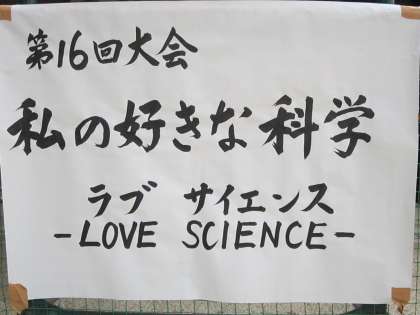 第16回大会
私の好きな科学
ラブ サイエンス
-LOVE SCIENCE-